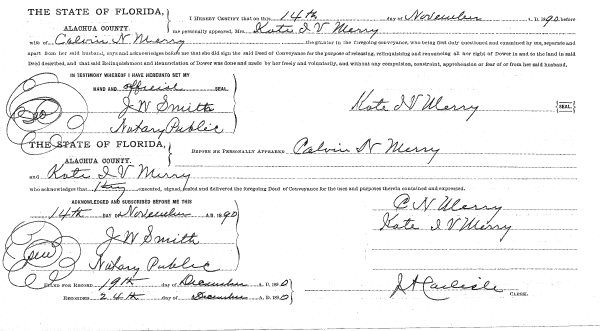 THE STATE OF FLORIDA,
ALACHUA COUNTY.
I HEREBY CERTIFY that on this 14th day of November A. D. 1890 before
me personally appeared, Mrs. Kate I V Merry
wife of Calvin N Merry the grantor in the foregoing conveyance, who being first duly questioned and examined by me, separate and
apart from her said husband, says and acknowledges before me that she did sign the said Deed of Conveyance for the purpose of releasing, relinquishing and renouncing all her right of Dower in and to the land in said
Deed described, and that said Relinquishment and Renunciation of Dower was done and made by her freely and voluntarily, and without any compulsion, constraint, apprehension or fear of or from her said husband.
IN TESTIMONY WHEREOF I HAVE HEREUNTO SET MY
HAND AND official SEAL.
J W Smith
Notary Public
Kate I V Merry SEAL.
THE STATE OF FLORIDA,
ALACHUA COUNTY.
BEFORE ME PERSONALLY APPEARED Calvin N Merry
and Kate I V Merry
who acknowledges that they executed, signed, sealed and delivered the foregoing Deed of Conveyance for the uses and purposes therein contained and expressed.
ACKNOWLEDGED AND SUBSCRIBED BEFORE ME THIS
14th DAY OF November A. D. 1890
J W Smith
Notary Public
C N Merry
Kate I V Merry
FILED FOR RECORD 19th day of December A. D. 1890
RECORDED 24th day of December A. D. 1890
J A Carlisle CLERK.